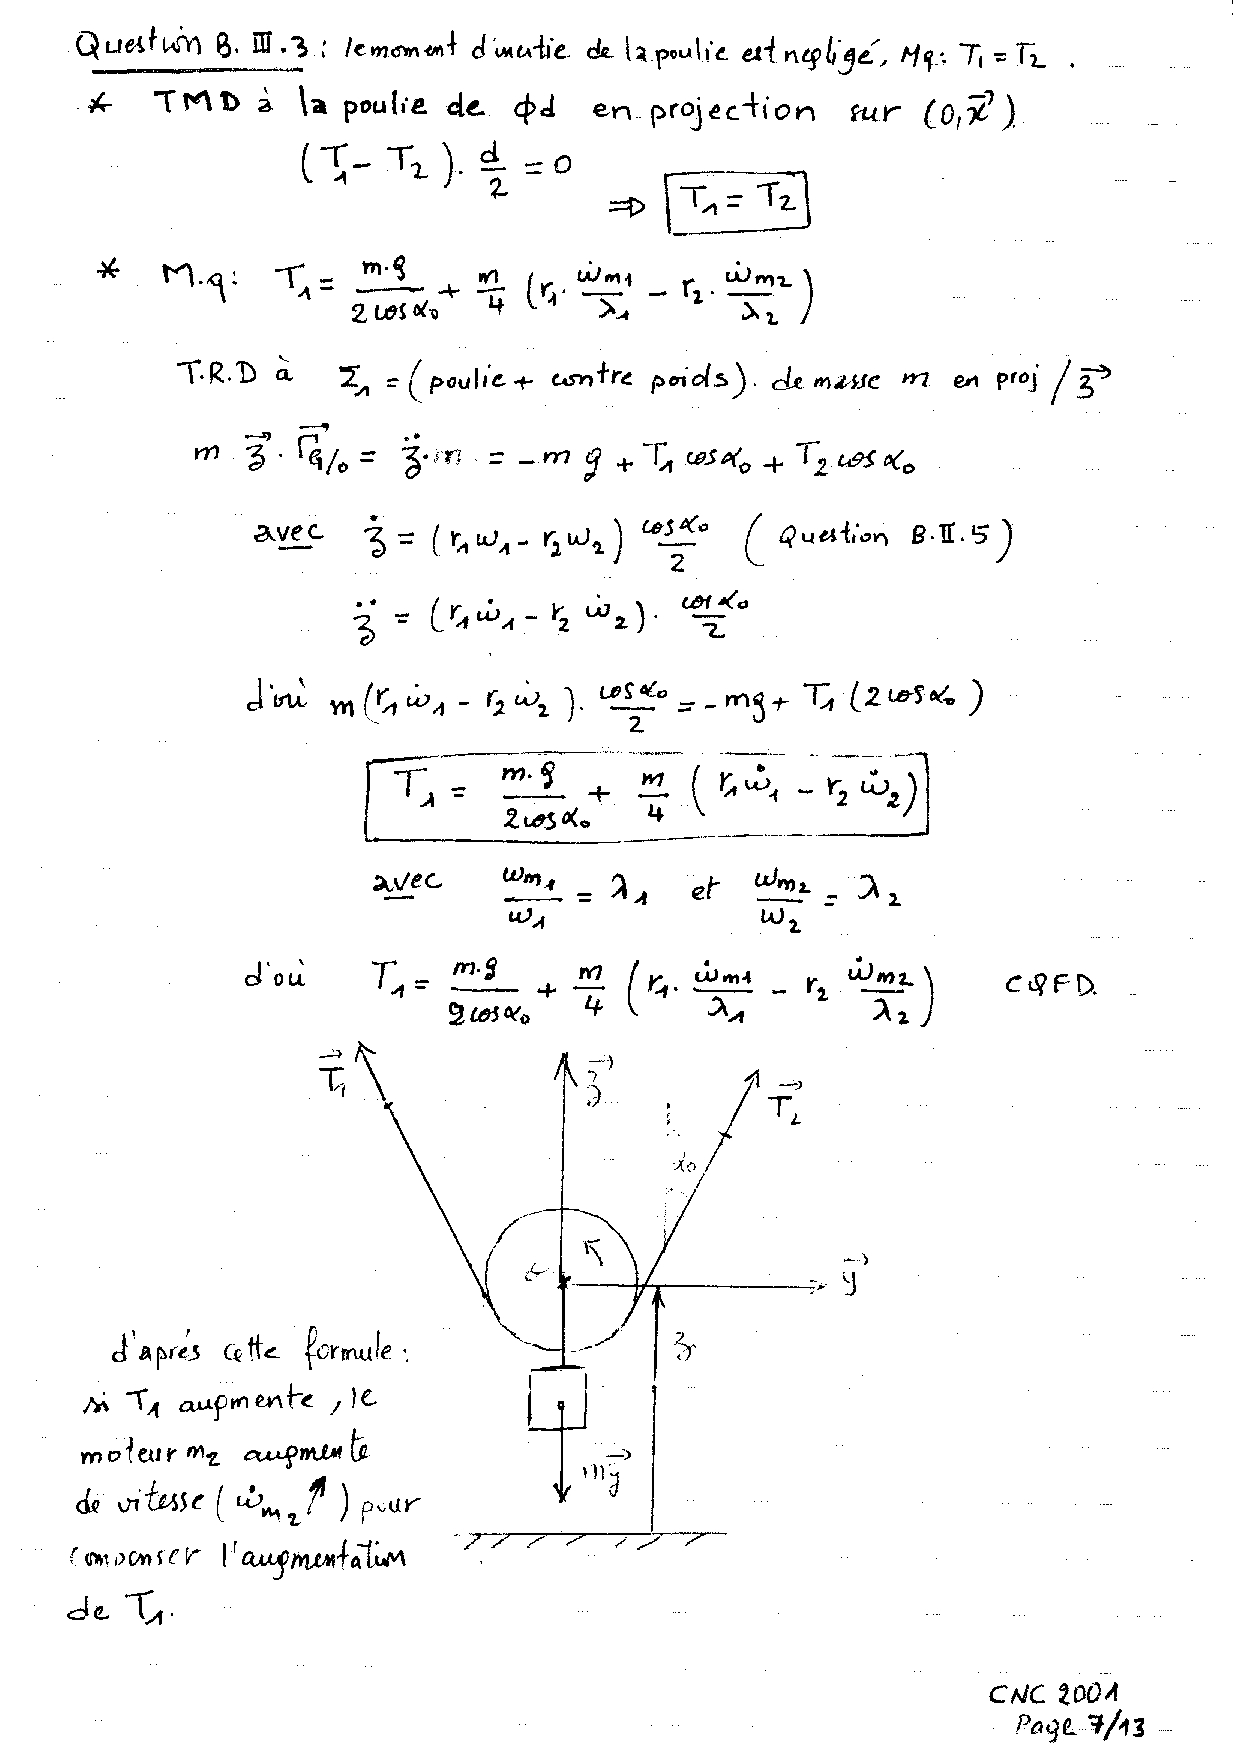 Question B. III.3 : le moment d'inertie de la poulie est negligé, Mq: T1 = T2 .
* TMD à la poulie de ϕd en projection sur (O,x⃗)
(T1 - T2). d/2 = 0
⇒ T1 = T2
* M.q: T1 = m.g/(2 cos α0) + m/4 (r1. ω̇m1/λ1 - r2. ω̇m2/λ2)
T.R.D à Σ1 = (poulie + contre poids). de masse m en proj / z⃗
m z⃗ . Γ⃗G/0 = z̈.m = - m g + T1 cos α0 + T2 cos α0
avec ż = (r1 ω1 - r2 ω2) cos α0/2 ( Question B.II.5 )
z̈ = (r1 ω̇1 - r2 ω̇2). cos α0/2
d'où m (r1 ω̇1 - r2 ω̇2). cos α0/2 = - mg + T1 (2 cos α0 )
T1 = m.g/(2 cos α0) + m/4 ( r1 ω̇1 - r2 ω̇2)
avec ωm1/ω1 = λ1 et ωm2/ω2 = λ2
d'où T1 = m.g/(2 cos α0) + m/4 ( r1. ω̇m1/λ1 - r2 ω̇m2/λ2 ) CQFD.
T⃗1 z⃗ T⃗2
α0
y⃗
z
mg⃗
d'aprés cette formule :
si T1 augmente , le
moteur m2 augmente
de vitesse ( ω̇m2 ↗ ) pour
compenser l'augmentation
de T1.
CNC 2001
Page 7/13